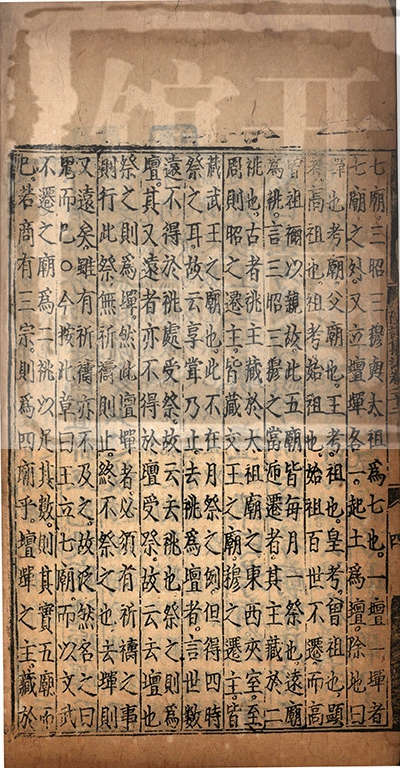 七廟三昭三穆與太祖為七也一壇一墠者
七廟之外又立壇墠各一起土為壇除地曰
墠也考廟父廟也王考祖也皇考曾祖也顯
考高祖也祖考始祖也始祖百世不遷而高
曾祖禰以親故此五廟皆每月一祭也遠廟
為祧言三昭三穆之當遞遷者其主藏於二
祧也古者祧主藏於太祖廟之東西夾室至
周則昭之遷主皆藏文王之廟穆之遷主皆
藏武王之廟也此不在月祭之列但得四時
祭之耳故云享嘗乃止去祧為壇者言世數
遠不得於祧處受祭故云去祧也祭之則為
壇其又遠者亦不得於壇受祭故云去壇也
祭之則為墠然此壇墠者必須有祈禱之事
則行此祭無祈禱則止終不祭之也去墠則
又遠矣雖有祈禱亦不及之故泛然名之曰
鬼而已○今按此章曰王立七廟而以文武
不遷之廟為二祧以足其數則其實五廟而
已若商有三宗則為四廟乎壇墠之主藏於